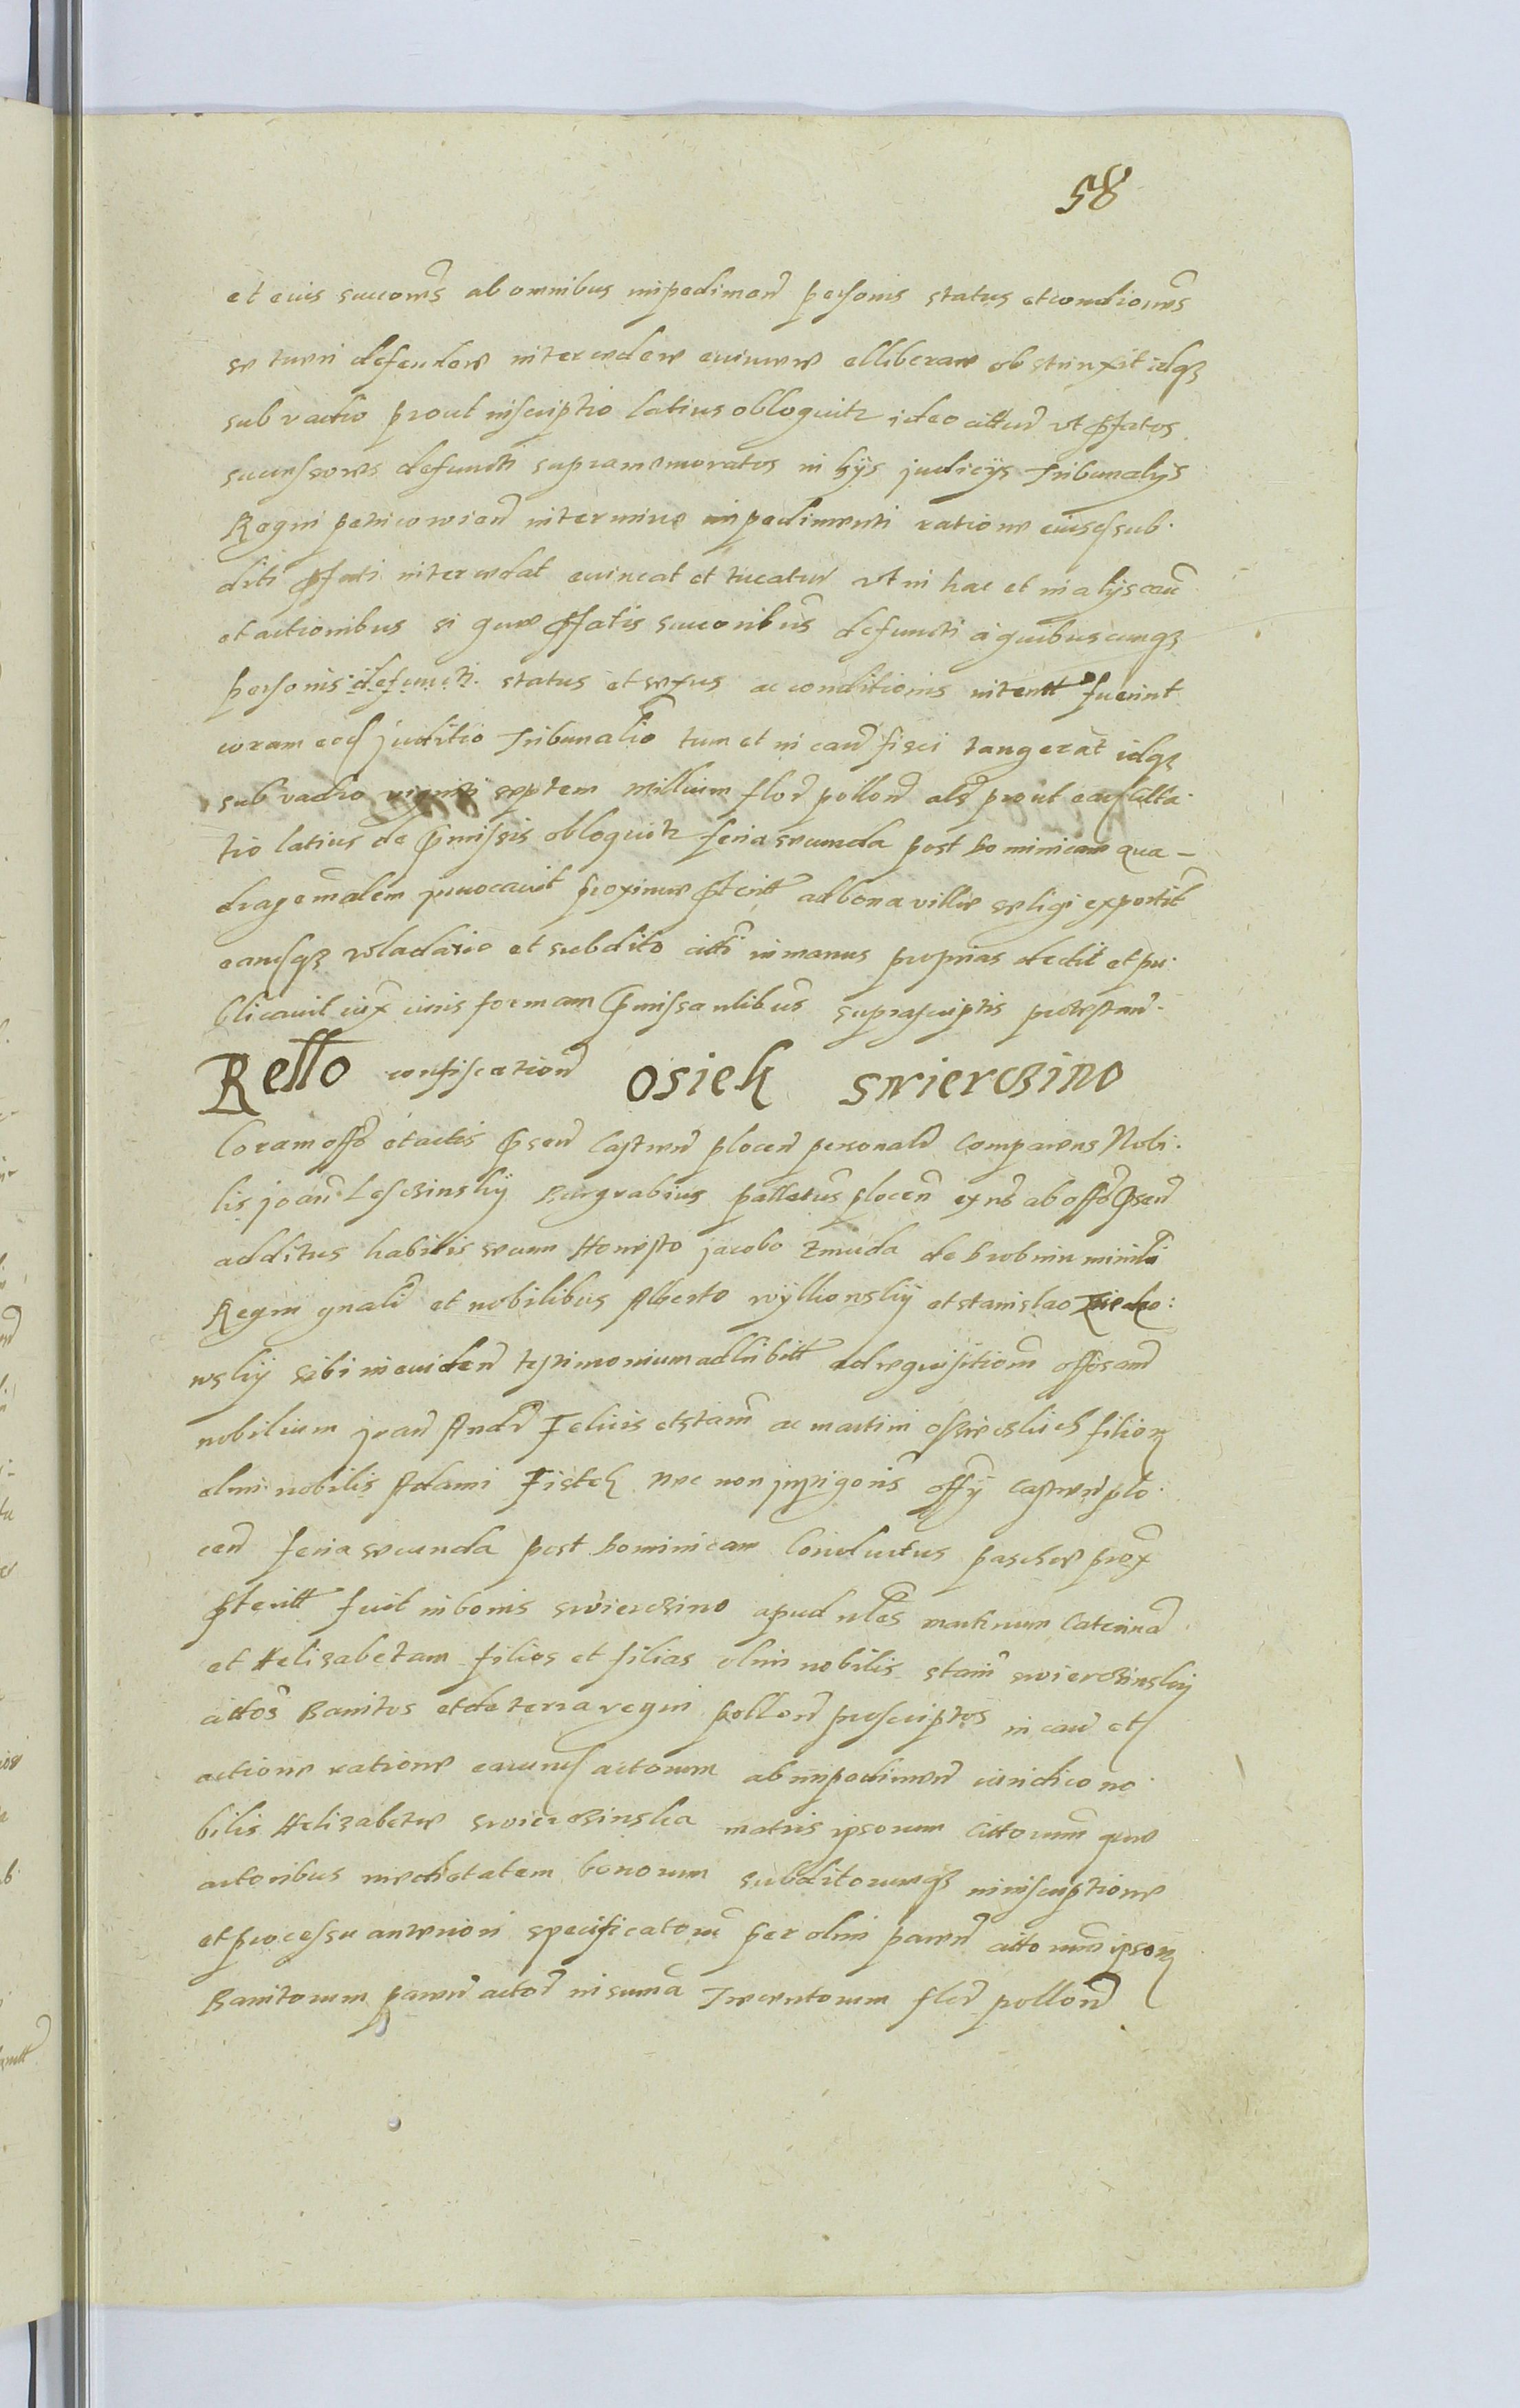 58
et eius succores ab omnibus impedimen personis status et condiones
se tueri defendere intercedere evincere et liberare obstrinxit idq3
sub vadio prout inscriptio latius obloquitr ideo cittur vt pfatos
sucessores defuncti supramemoratos in hijs judicijs Tribunalijs
Regni petricowien in termino impedimenti ratione eiusd sub
diti pfati intercedat evincat et tueatur vt in hac et in alijs cau
et actionibus si que pfatis succoribus defuncti a quibuscunq3
personis defuncti status et sexus ac conditionis intentt fuerint
coram eod juditio Tribunali tum et in cau fisci tangerat idq3
sub vadio viginti septem millium flor pollon als prout ead citta
tio latius de pmissis obloquitr feria secunda post Dominicam qua-
dragesmalem jnuocauit proxime pteritt ad bona ville seligi exportit
eandq3 wladario et subdito citti in manus proprias dedit et pu
blicauit iux iuris formam pmissa ulibus suprascriptis protestan.
Rello confiscation osiek swierczino
Coram offo et actis psen Castren plocen personalr comparens Nobi
lis joan Lesczinskij Burgrabius pallatus plocen ex nr ab offo psen
additus habitis secum Honesto jacobo Zmuda de Drobnin minili
Regni gnali et nobilibus Alberto wyllionskij et stanislao
wskij sibi in euiden testimonium adhibitt ad requisitiom offosam
nobilium joan Andr Felicis et stani ac martini filior
olim nobilis Adami Fistek nec non jnstigoris offij castren plo
cen feria secunda post Dominicam Conductus pasche prox
pteritt fuit in bonis swierczino apud nles martinum Caterina
et Helizabetam filios et filias olim nobilis stani swierczinskij
cittos Banitos et de terra regni pollon proscriptos in cau et
actione ratione earund actorum ab impedimen iuridico no
bilis Helizabete swierczinska matris ipsorum cittorum que
actoribus medietatem bonorum subditorumq3 in inscriptione
et processu anteriori specificatorum per olim paren cittorum ipsor
Banitorum paren actor in suma Trecentorum flor pollon